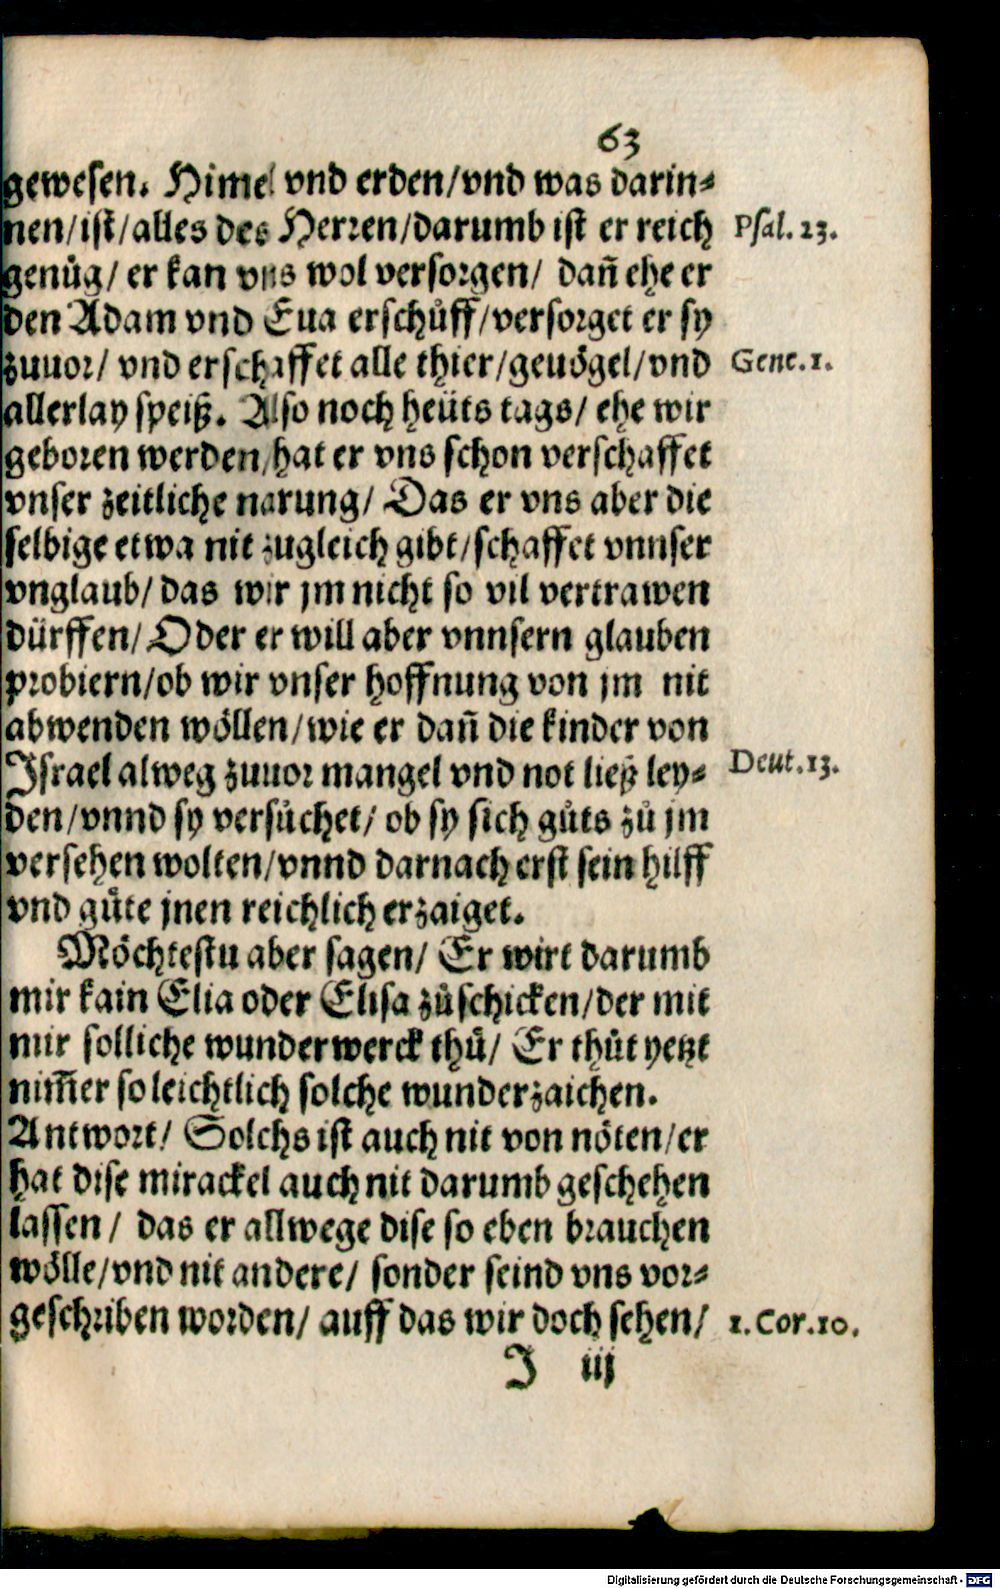 63
gewesen. Himel vnd erden/vnd was darin⸗
nen/ist/alles des Herren/darumb ist er reich Psal. 23.
genůg/ er kan vns wol versorgen/ dañ ehe er
den Adam vnd Eua erschůff/versorget er sy
zuuor/ vnd erschaffet alle thier/geuögel/vnd Gene. 1.
allerlay speiß. Also noch heüts tags/ ehe wir
geboren werden/hat er vns schon verschaffet
vnser zeitliche narung/ Das er vns aber die
selbige etwa nit zugleich gibt/schaffet vnnser
vnglaub/das wir jm nicht so vil vertrawen
dürffen/ Oder er will aber vnnsern glauben
probiern/ob wir vnser hoffnung von jm nit
abwenden wöllen/wie er dañ die kinder von
Israel alweg zuuor mangel vnd not ließ ley⸗ Deut. 13.
den/vnnd sy versůchet/ ob sy sich gůts zů jm
versehen wolten/vnnd darnach erst sein hilff
vnd gůte jnen reichlich erzaiget.
Möchtestu aber sagen/ Er wirt darumb
mir kain Elia oder Elisa zůschicken/der mit
mir solliche wunderwerck thů/ Er thůt yetzt
nim̃er so leichtlich solche wunderzaichen.
Antwort/ Solchs ist auch nit von nöten/er
hat dise mirackel auch nit darumb geschehen
lassen/ das er allwege dise so eben brauchen
wölle/vnd nit andere/ sonder seind vns vor⸗
geschriben worden/ auff das wir doch sehen/ 1. Cor. 10.
J iij
Digitalisierung gefördert durch die Deutsche Forschungsgemeinschaft - DFG